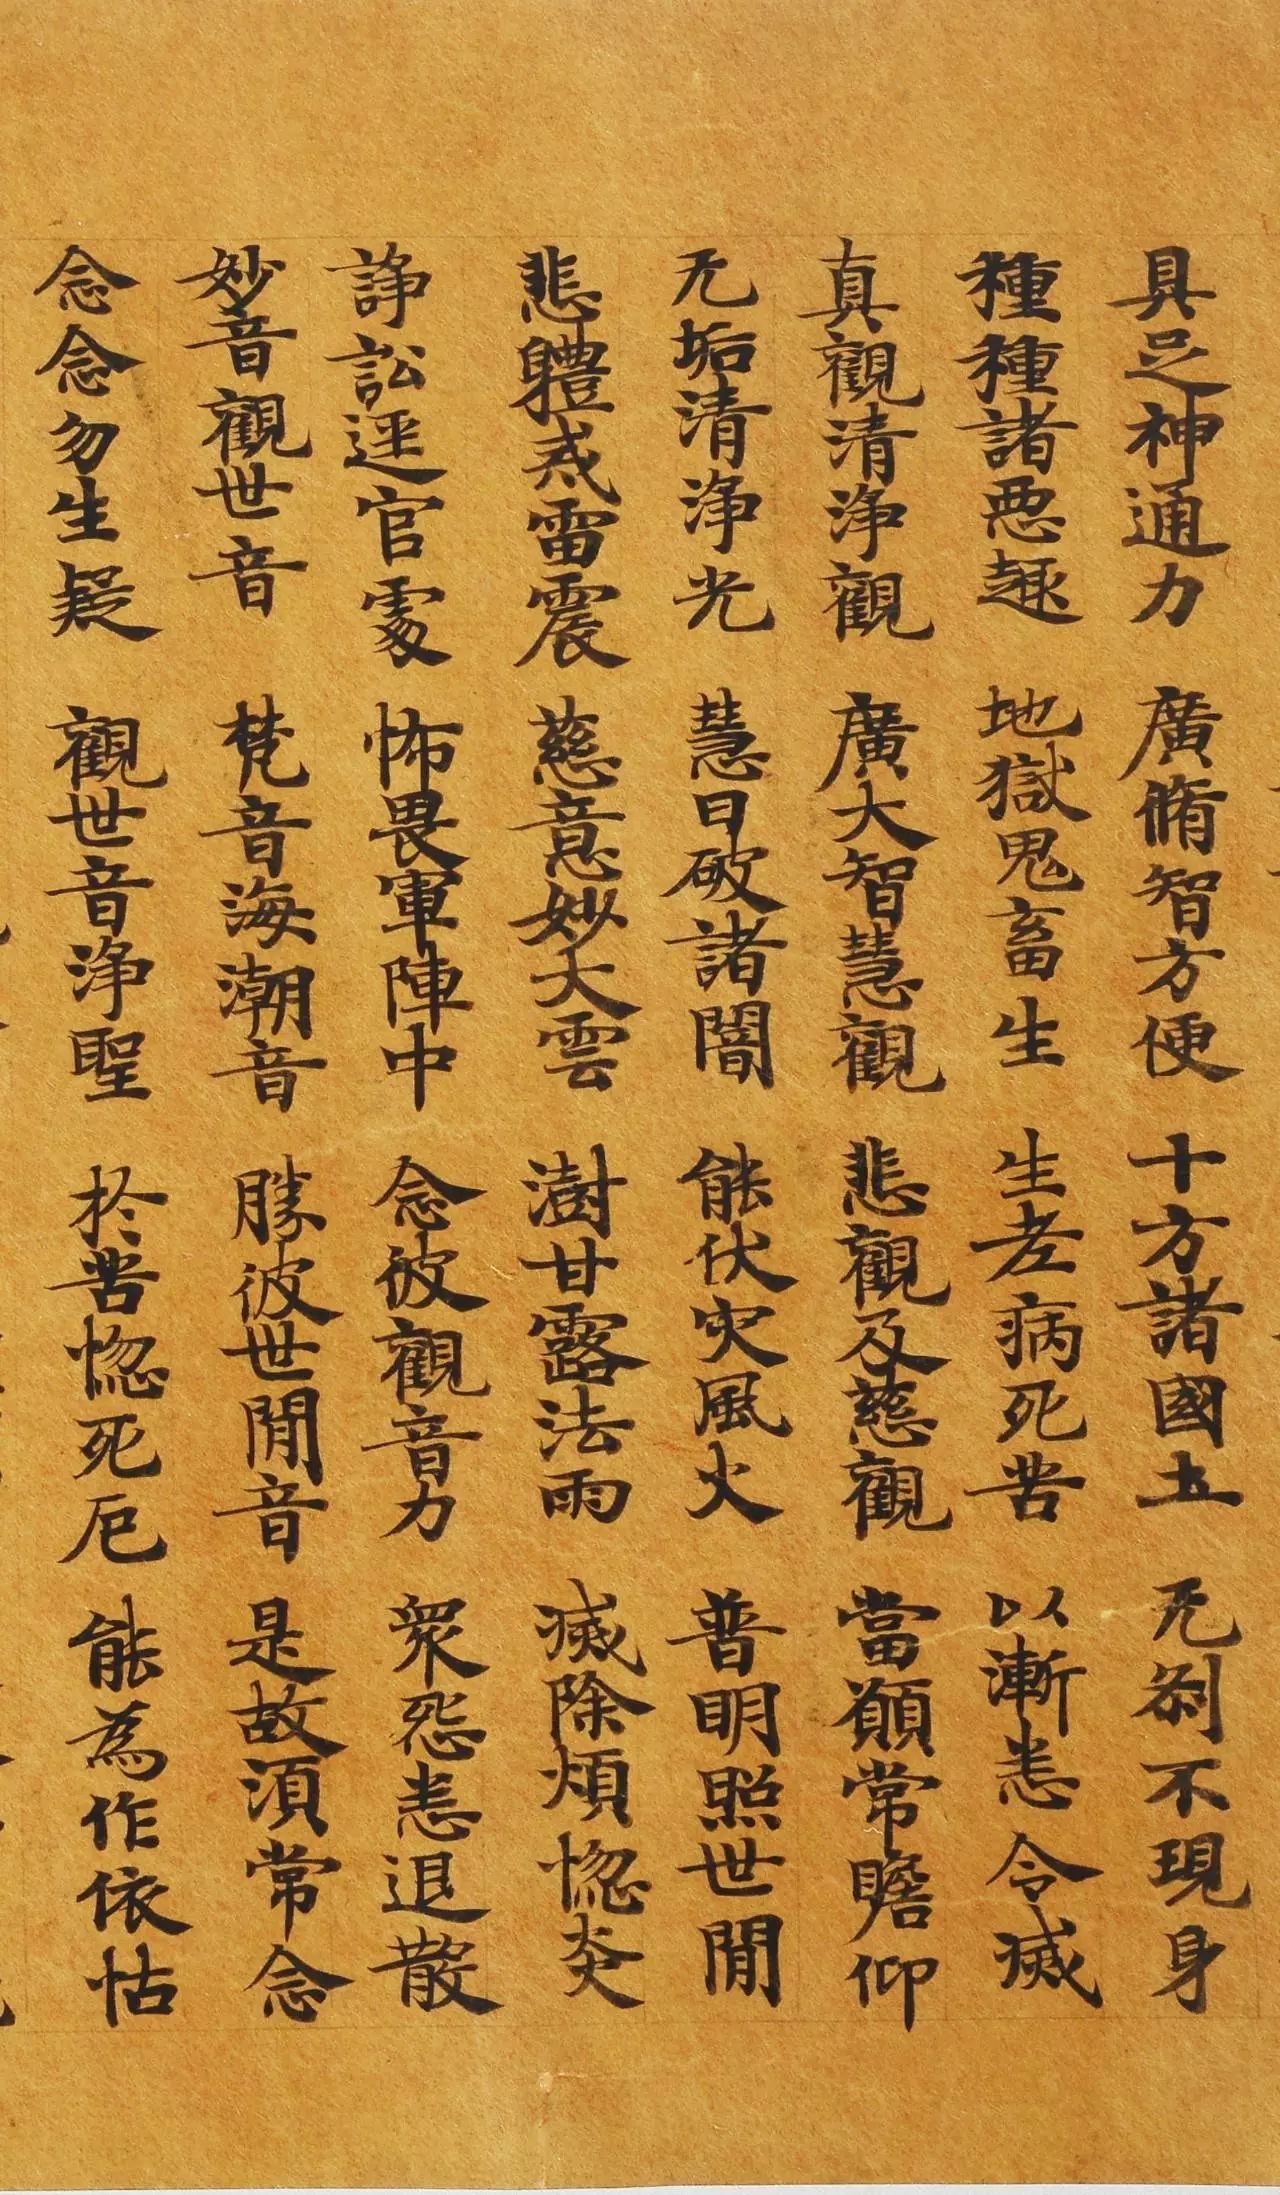 具足神通力 廣脩智方便 十方諸國土 无刹不現身
種種諸惡趣 地獄鬼畜生 生老病死苦 以漸悉令滅
真觀清淨觀 廣大智慧觀 悲觀及慈觀 當願常瞻仰
无垢清淨光 慧日破諸闇 能伏灾風火 普明照世間
悲體戒雷震 慈意妙大雲 澍甘露法雨 滅除煩惱炎
諍訟逕官處 怖畏軍陣中 念彼觀音力 衆怨悉退散
妙音觀世音 梵音海潮音 勝彼世間音 是故須常念
念念勿生疑 觀世音淨聖 於苦惱死厄 能為作依怙